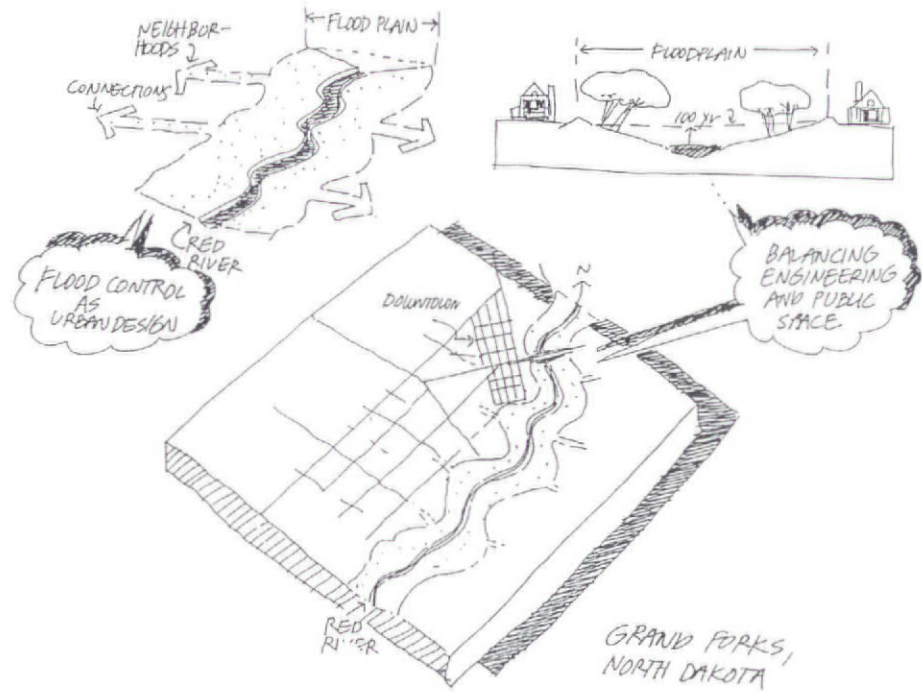 NEIGHBOR-
HOODS
FLOOD PLAIN
CONNECTIONS
RED
RIVER
FLOOD CONTROL
AS
URBAN DESIGN
FLOODPLAIN
100 yr
BALANCING
ENGINEERING
AND PUBLIC
SPACE.
DOWNTOWN
N
RED
RIVER
GRAND FORKS,
NORTH DAKOTA